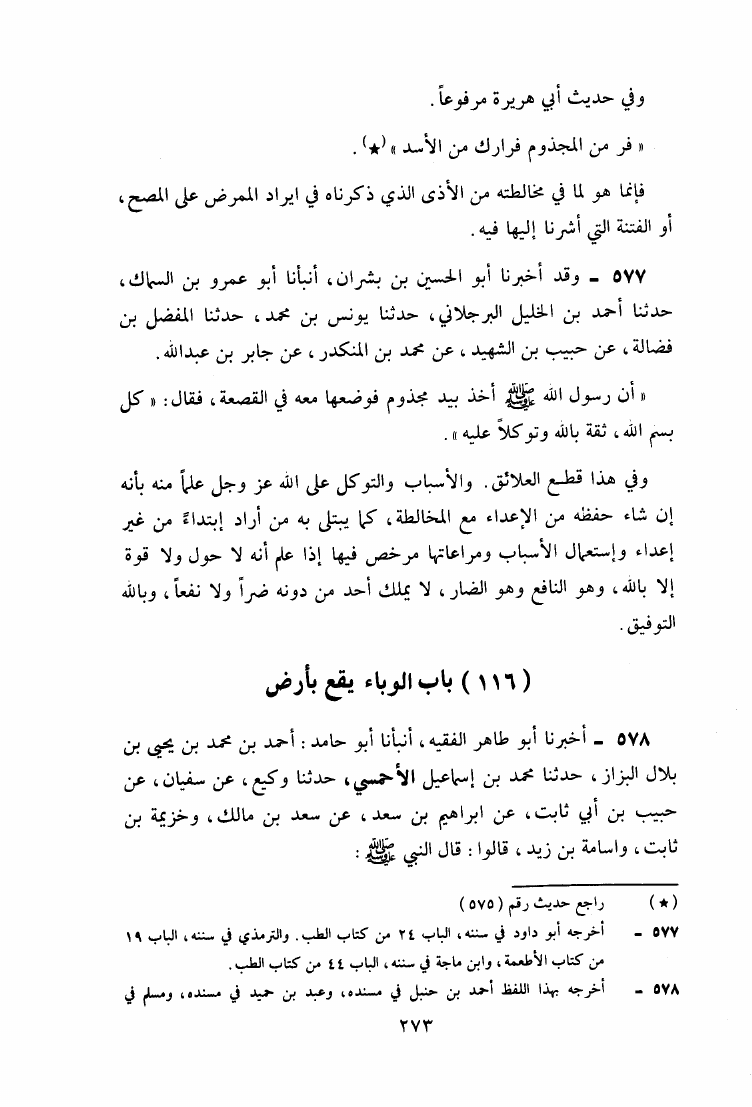 وفي حديث أبي هريرة مرفوعاً .
« فر من المجذوم فرارك من الأسد »(★) .
فإنما هو لما في مخالطته من الأذى الذي ذكرناه في ايراد الممرض على المصح ،
أو الفتنة التي أشرنا إليها فيه .
٥٧٧ ـ وقد أخبرنا أبو الحسين بن بشران ، أنبأنا أبو عمرو بن السماك ،
حدثنا أحمد بن الخليل البرجلاني ، حدثنا يونس بن محمد ، حدثنا المفضل بن
فضالة ، عن حبيب بن الشهيد ، عن محمد بن المنكدر ، عن جابر بن عبدالله .
« أن رسول الله ﷺ أخذ بيد مجذوم فوضعها معه في القصعة ، فقال : « كل
بسم الله ، ثقة بالله وتوكلاً عليه » .
وفي هذا قطع العلائق . والأسباب والتوكل على الله عز وجل علماً منه بأنه
إن شاء حفظه من الإعداء مع المخالطة ، كما يبتلى به من أراد إبتداءً من غير
إعداء وإستعمال الأسباب ومراعاتها مرخص فيها إذا علم أنه لا حول ولا قوة
إلا بالله ، وهو النافع وهو الضار ، لا يملك أحد من دونه ضراً ولا نفعاً ، وبالله
التوفيق .
( ١١٦ ) باب الوباء يقع بأرض
٥٧٨ ـ أخبرنا أبو طاهر الفقيه ، أنبأنا أبو حامد : أحمد بن محمد بن يحيى بن
بلال البزاز ، حدثنا محمد بن إسماعيل الأحمسي ، حدثنا وكيع ، عن سفيان ، عن
حبيب بن أبي ثابت ، عن ابراهيم بن سعد ، عن سعد بن مالك ، وخزيمة بن
ثابت ، واسامة بن زيد ، قالوا : قال النبي ﷺ :
(★) راجع حديث رقم (٥٧٥)
٥٧٧ ـ أخرجه أبو داود في سننه ، الباب ٢٤ من كتاب الطب . والترمذي في سننه ، الباب ١٩
من كتاب الأطعمة ، وابن ماجة في سننه ، الباب ٤٤ من كتاب الطب .
٥٧٨ ـ أخرجه بهذا اللفظ أحمد بن حنبل في مسنده ، وعبد بن حميد في مسنده ، ومسلم في
٢٧٣